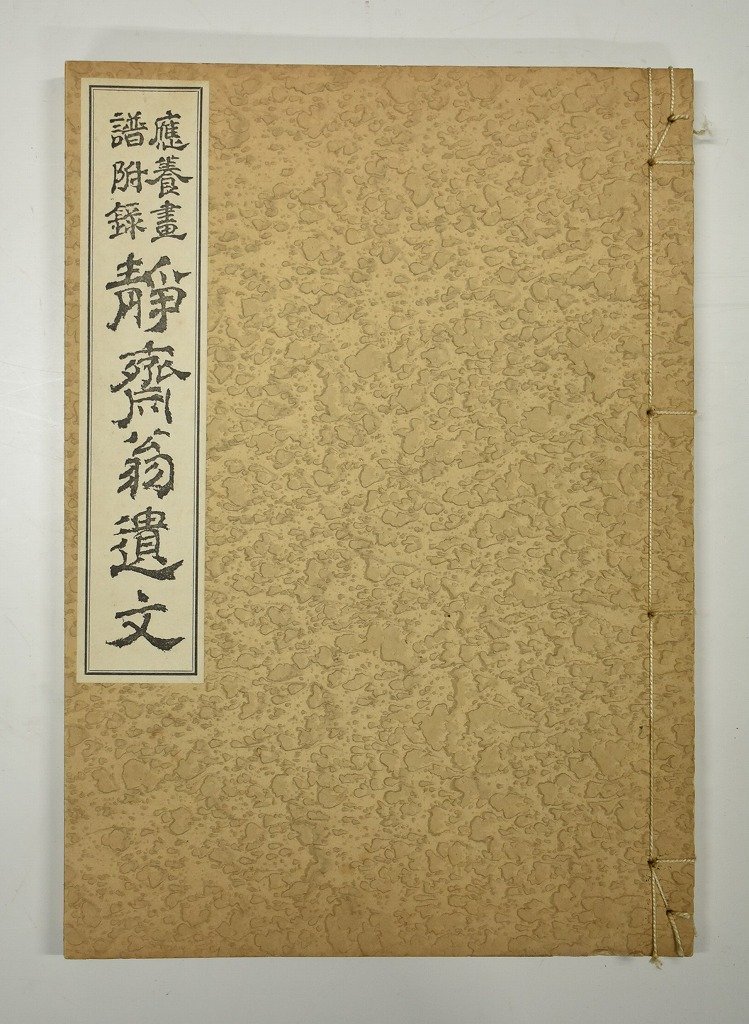 應養畫
譜附錄
靜齋翁遺文